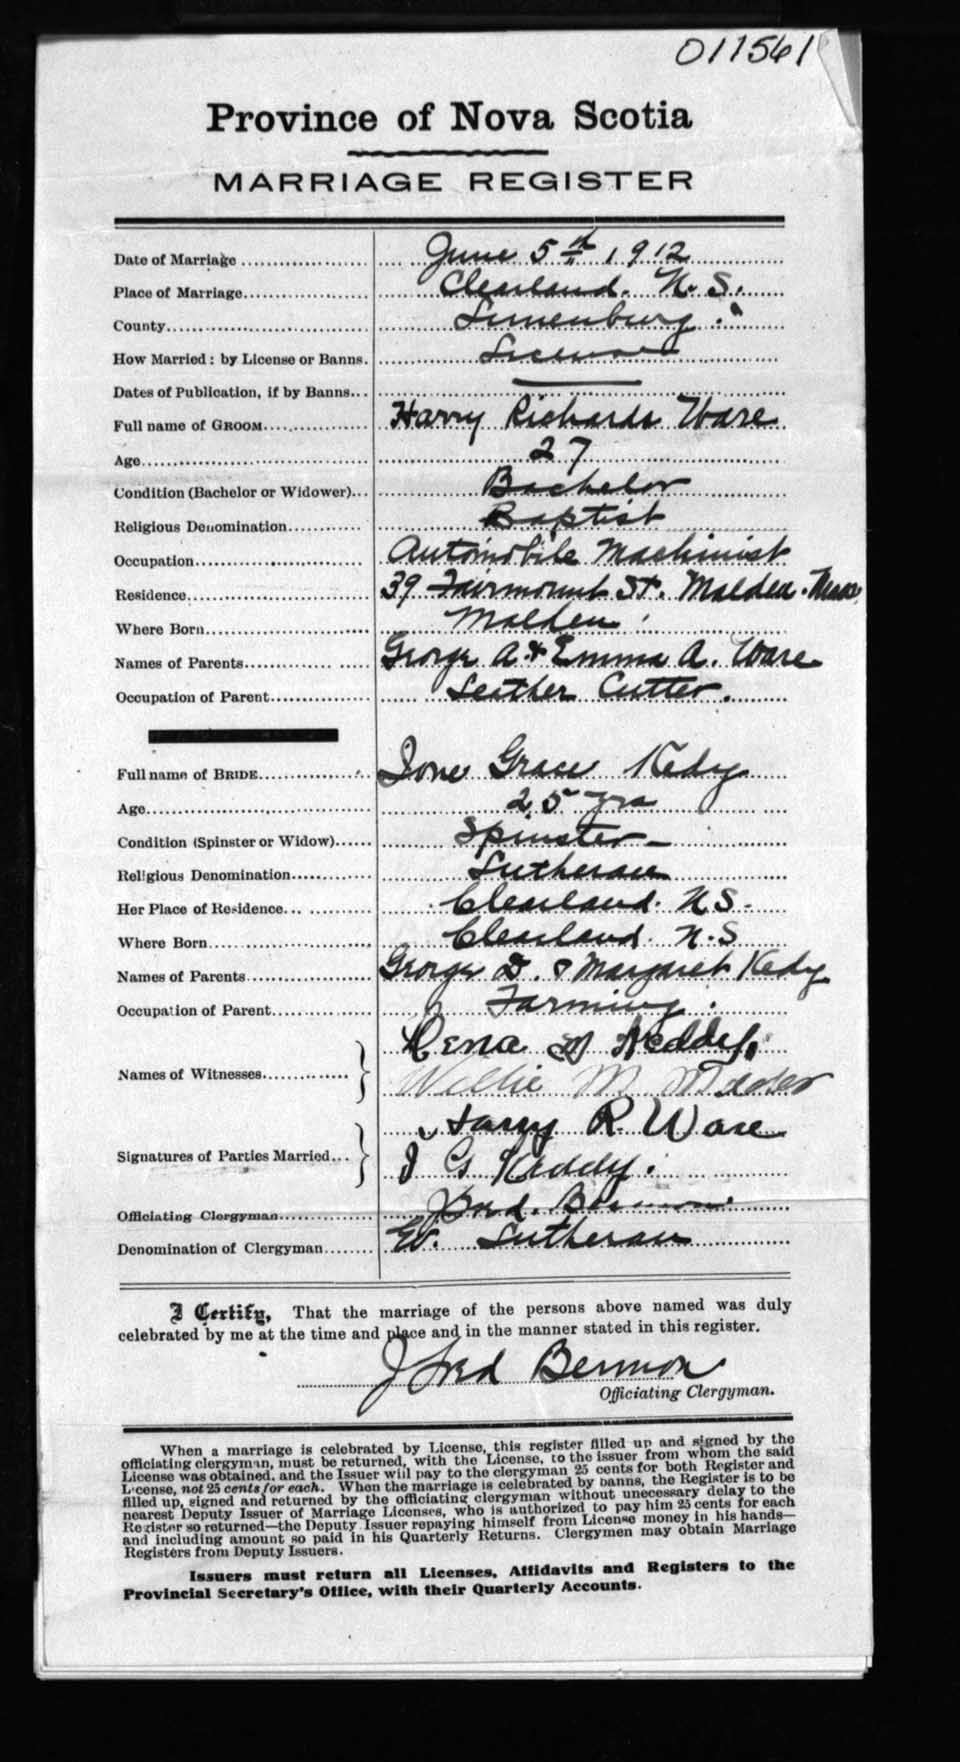 011561
Province of Nova Scotia
MARRIAGE REGISTER
Date of Marriage June 5th 1912
Place of Marriage Clearland. N. S.
County Lunenburg.
How Married: by License or Banns. License
Dates of Publication, if by Banns
Full name of GROOM Harry Richards Ware
Age 27
Condition (Bachelor or Widower) Bachelor
Religious Denomination Baptist
Occupation Automobile Machinist
Residence 39 Fairmount St. Malden. Mass.
Where Born Malden
Names of Parents George A. & Emma A. Ware
Occupation of Parent Leather Cutter.
Full name of BRIDE Ione Grace Kedy
Age 25 yrs
Condition (Spinster or Widow) Spinster
Religious Denomination Lutheran
Her Place of Residence Clearland. N S.
Where Born Clearland. N. S
Names of Parents George D. & Margaret Kedy
Occupation of Parent Farming.
Names of Witnesses
Rena M Keddy
Willie M
Signatures of Parties Married
Harry R. Ware
I G Keddy.
Officiating Clergyman Fred.
Denomination of Clergyman Ev. Lutheran
I Certify, That the marriage of the persons above named was duly
celebrated by me at the time and place and in the manner stated in this register.
J Fred Bermon
Officiating Clergyman.
When a marriage is celebrated by License, this register filled up and signed by the
officiating clergyman, must be returned, with the License, to the issuer from whom the said
License was obtained, and the Issuer will pay to the clergyman 25 cents for both Register and
License, not 25 cents for each. When the marriage is celebrated by banns, the Register is to be
filled up, signed and returned by the officiating clergyman without unnecessary delay to the
nearest Deputy Issuer of Marriage Licenses, who is authorized to pay him 25 cents for each
Register so returned—the Deputy Issuer repaying himself from License money in his hands—
and including amount so paid in his Quarterly Returns. Clergymen may obtain Marriage
Registers from Deputy Issuers.
Issuers must return all Licenses, Affidavits and Registers to the
Provincial Secretary's Office, with their Quarterly Accounts.